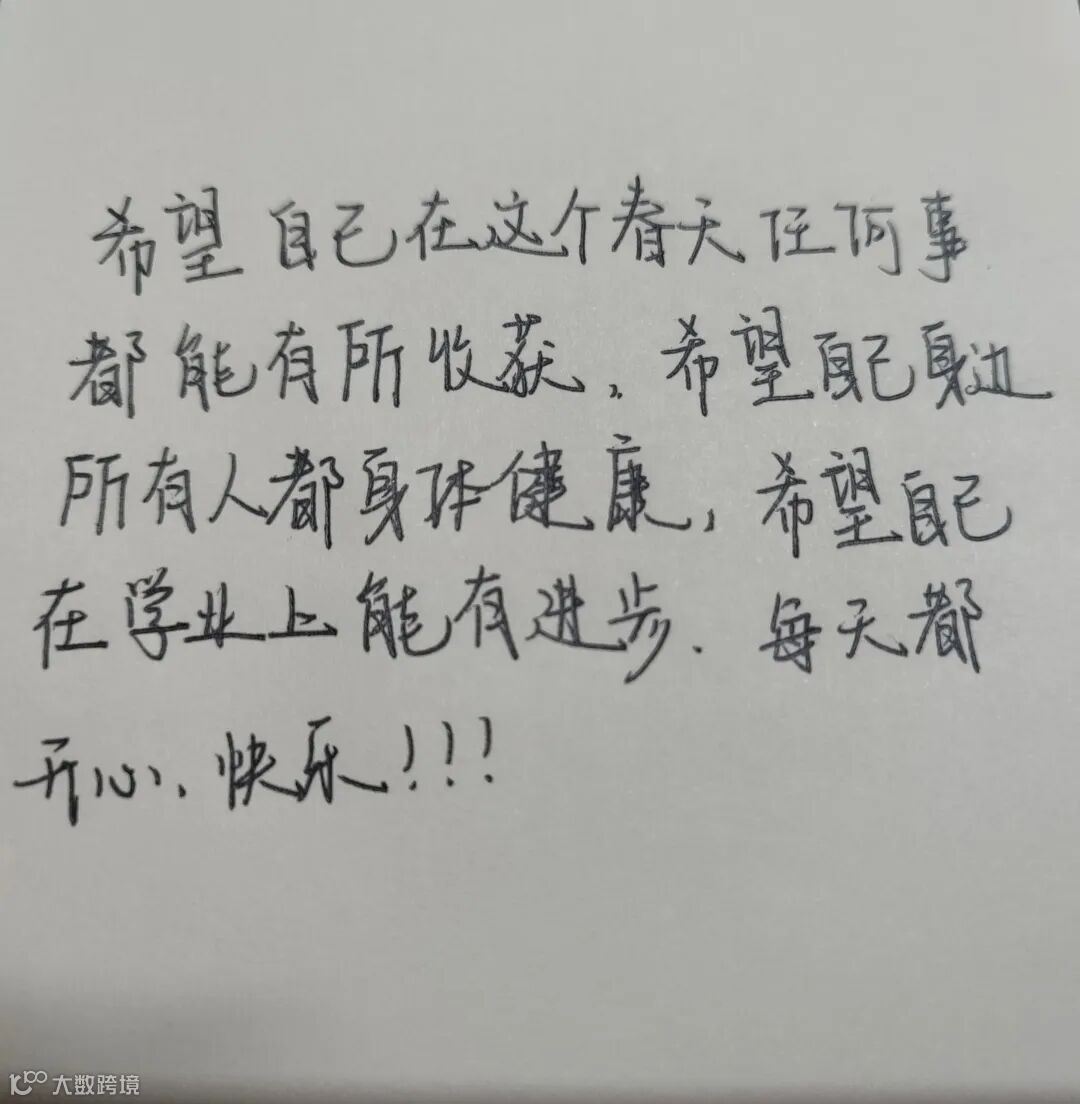 希望自己在这个春天任何事
都能有所收获。希望自己身边
所有人都身体健康,希望自己
在学业上能有进步.每天都
开心、快乐!!!
大数跨境